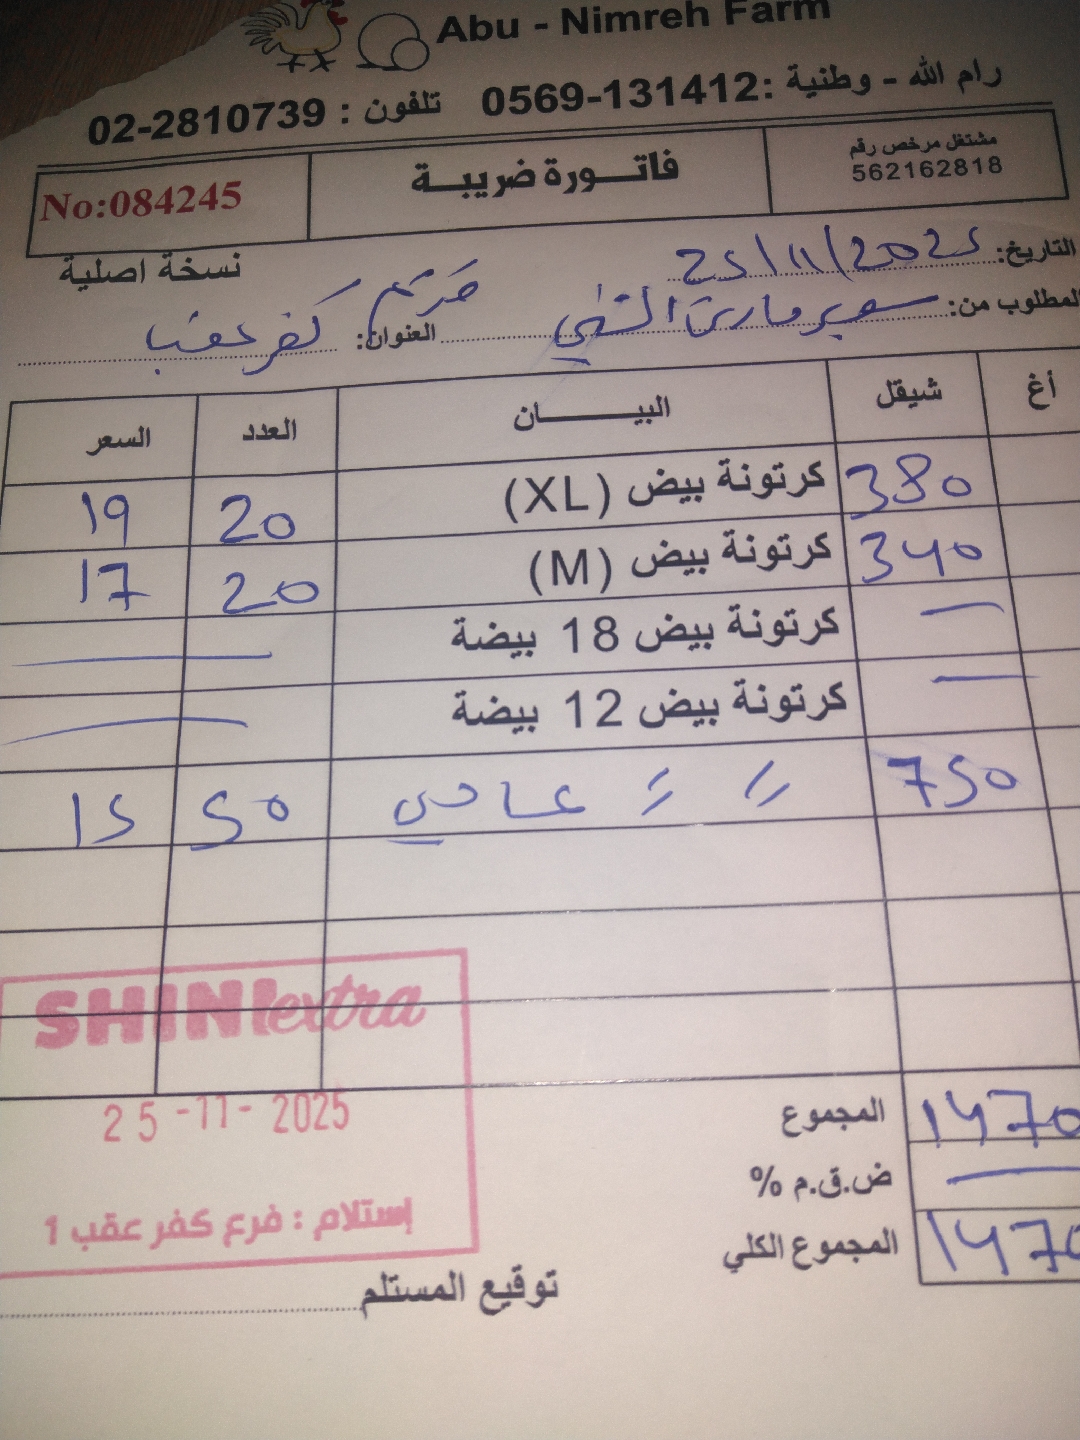 Abu - Nimreh Farm
رام الله - وطنية :0569-131412 تلفون : 02-2810739
مشتغل مرخص رقم
562162818
فاتورة ضريبة
No:084245
نسخة اصلية
التاريخ: 25/11/2025
المطلوب من: سوبر ماركت الشني
العنوان: كفر عقب
أغ شيقل البيان العدد السعر
380 كرتونة بيض (XL) 20 19
340 كرتونة بيض (M) 20 17
— كرتونة بيض 18 بيضة —
— كرتونة بيض 12 بيضة —
750 〃 〃 عادي 50 15
المجموع 1470
ض.ق.م % —
المجموع الكلي 1470
SHINI extra
25-11-2025
إستلام : فرع كفر عقب 1
توقيع المستلم